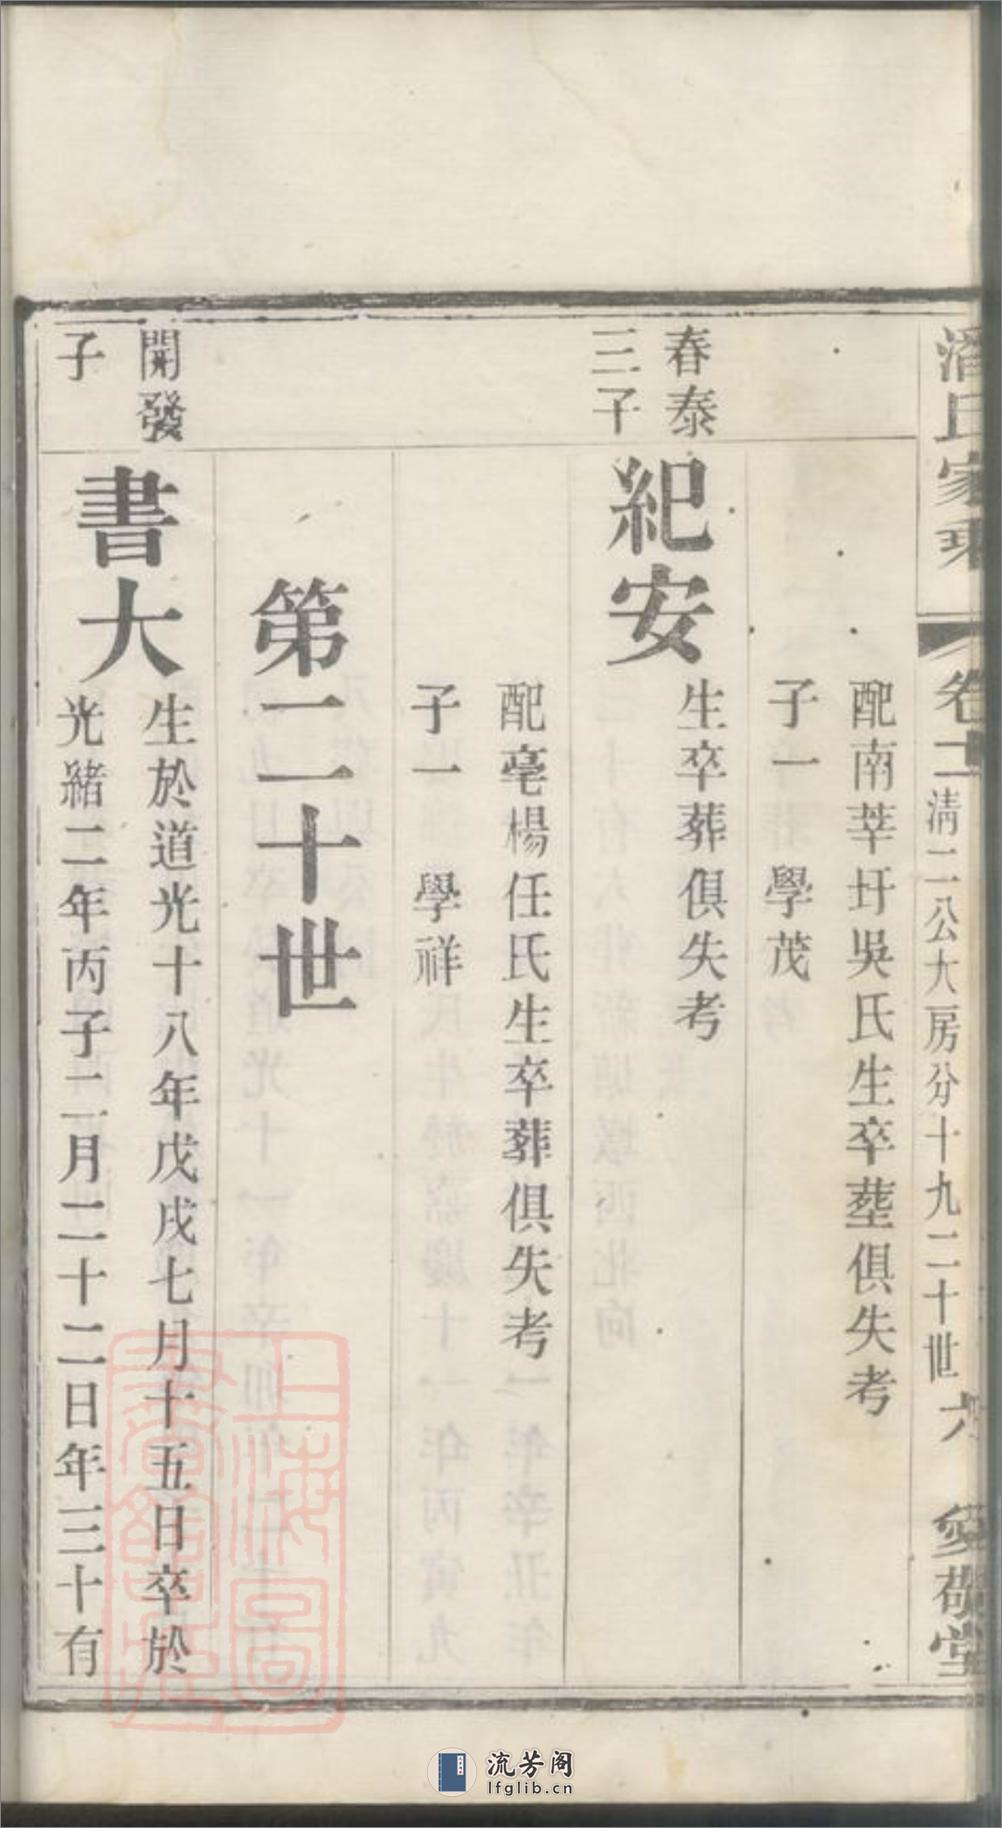 潘氏家乘
卷十二
清二公大房分十九二十世
六
愛敬堂
配南莘圩吳氏生卒塟俱失考
子一　學茂
春泰
三子
紀安
生卒葬俱失考
配亳楊任氏生卒葬俱失考
子一　學祥
第二十世
開發
子
書大
生於道光十八年戊戌七月十五日卒於
光緒二年丙子二月二十二日年三十有
上海圖書館藏
流芳阁
lfglib.cn